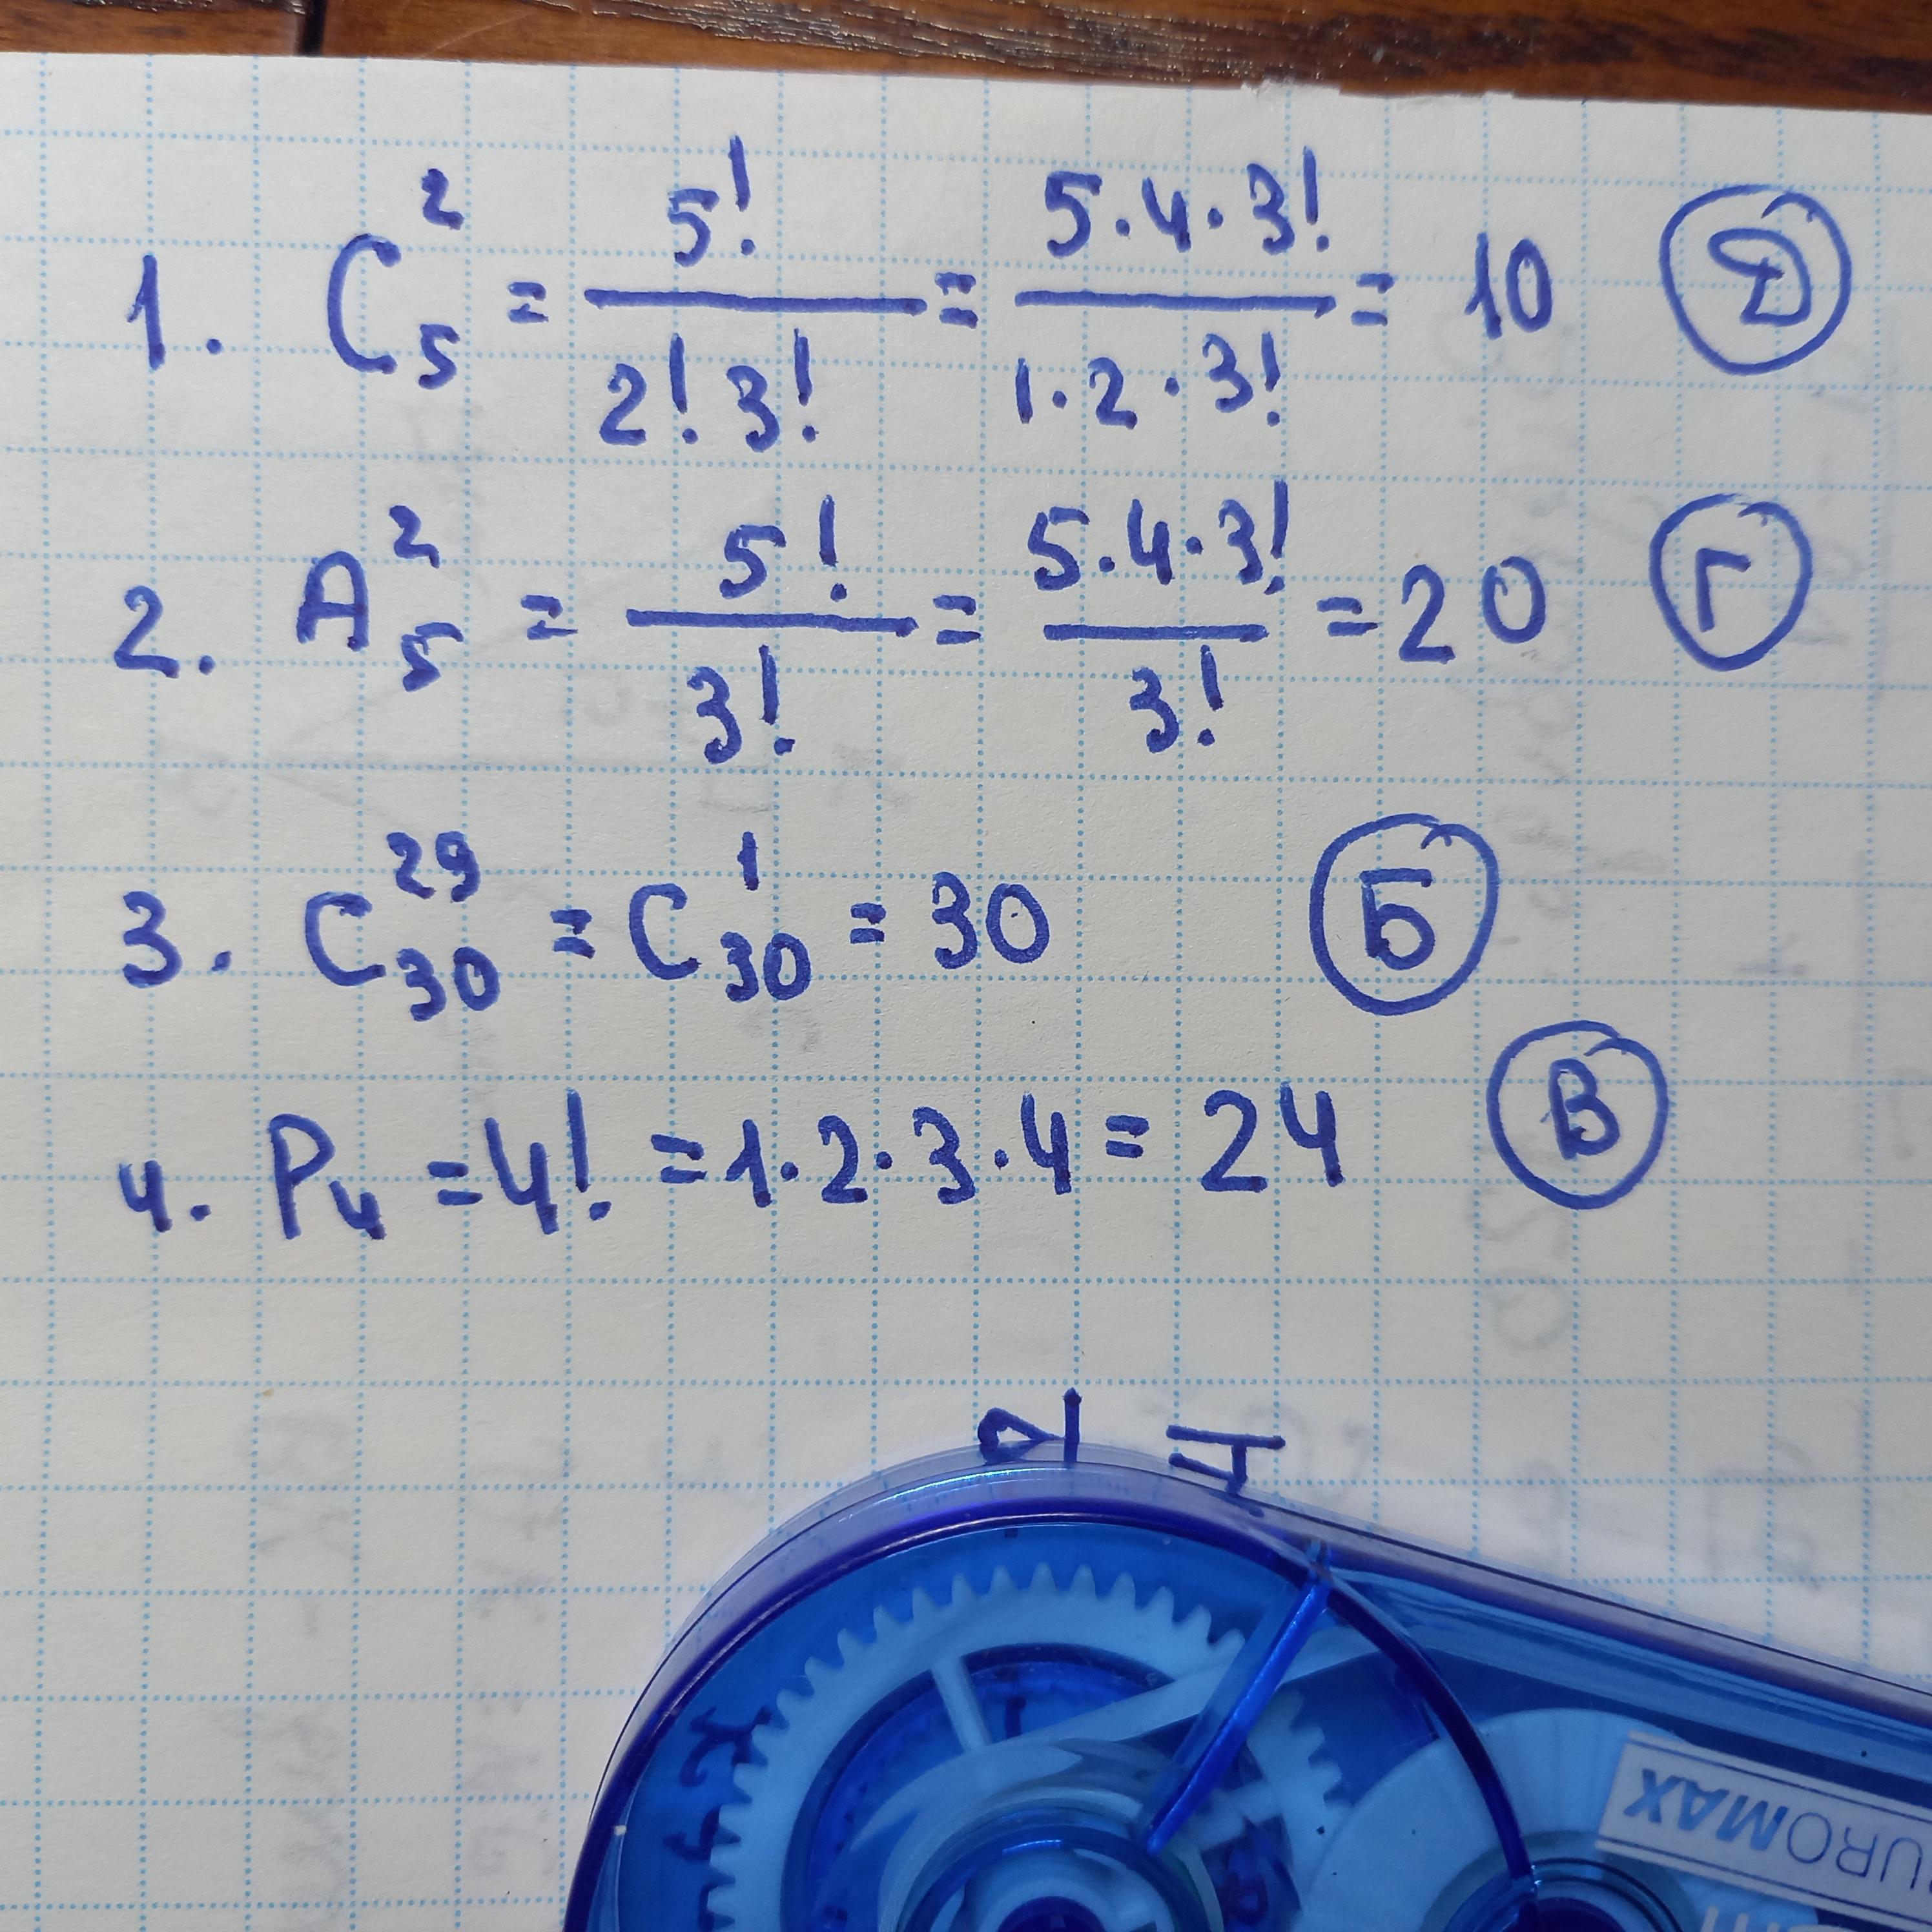 1. C₅² = 5!/(2! 3!) = (5·4·3!)/(1·2·3!) = 10 Д
2. A₅² = 5!/3! = (5·4·3!)/3! = 20 Г
3. C₃₀²⁹ = C₃₀¹ = 30 Б
4. P₄ = 4! = 1·2·3·4 = 24 В
UROMAX